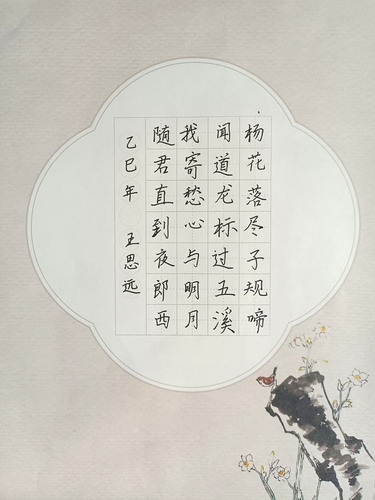 杨花落尽子规啼
闻道龙标过五溪
我寄愁心与明月
随君直到夜郎西
乙巳年 王思远